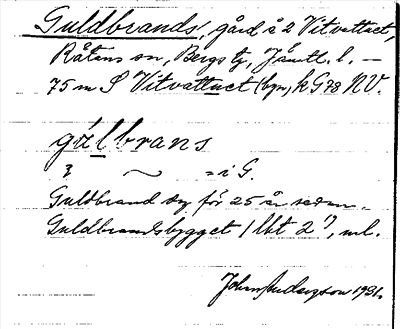 Guldbrands, gård å 2 Vitvattnet,
Råtans sn, Bergs tg, Jämtl. l. —
75 m S Vitvattnet (byn), k G 78 NV.
gu̇lbrans
~ = i G.
Guldbrand dog för 25 år sedan.
Guldbrandsbygget / lbt 2¹), ml.
John Andersson 1931.